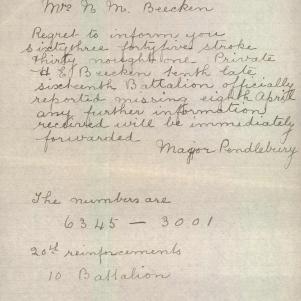 Mrs N M. Beecken
Regret to inform you
sixtythree fortyfive stroke
thirty nought one Private
H E Beecken tenth late
sixteenth Battalion officially
reported missing eighth April
any further information
received will be immediately
forwarded
Mayor Pendlebury
The numbers are
6345 — 3001
20th reinforcements
10 Battalion